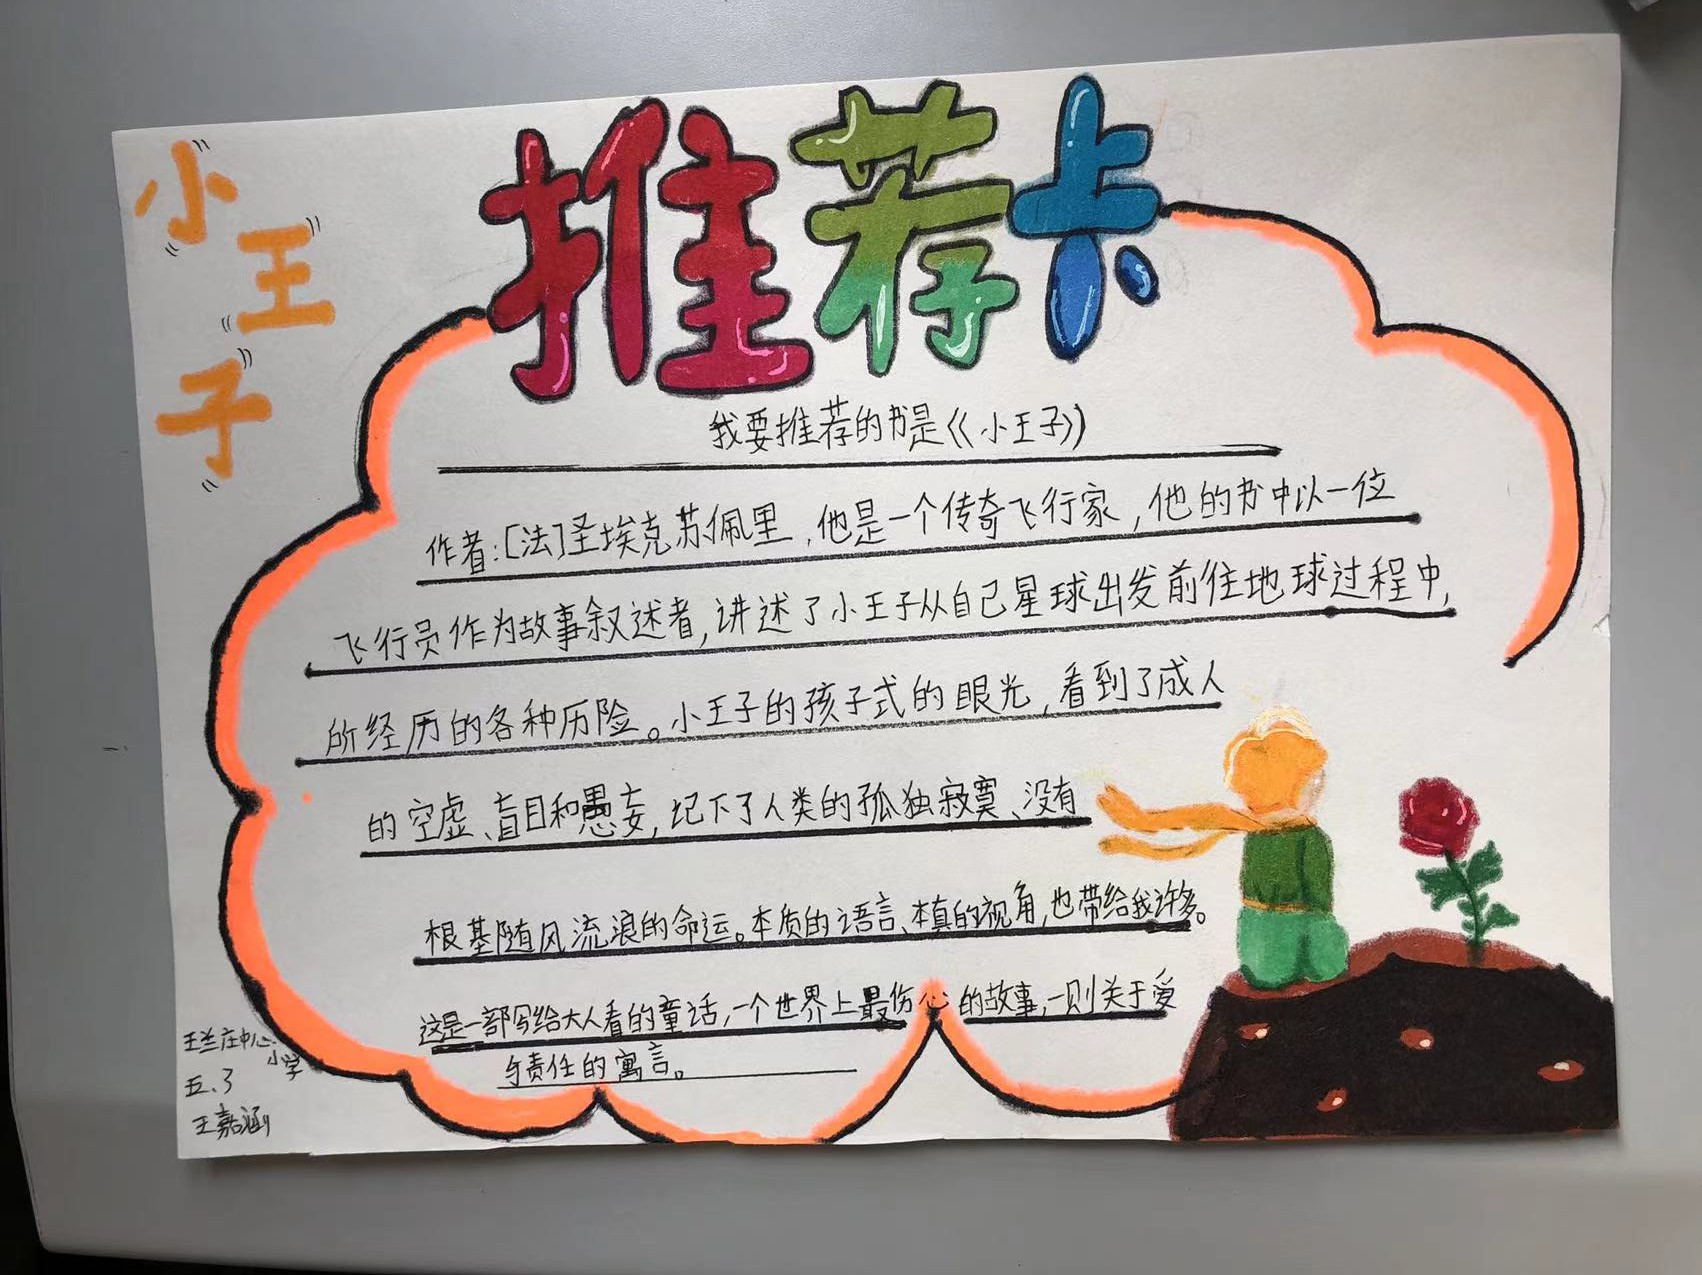 小王子
推荐卡
我要推荐的书是《小王子》
作者:[法]圣埃克苏佩里,他是一个传奇飞行家,他的书中以一位
飞行员作为故事叙述者,讲述了小王子从自己星球出发前往地球过程中,
所经历的各种历险。小王子的孩子式的眼光,看到了成人
的空虚、盲目和愚妄,记下了人类的孤独寂寞、没有
根基随风流浪的命运。本质的语言、本真的视角,也带给我许多。
这是一部写给大人看的童话,一个世界上最伤心的故事,一则关于爱
与责任的寓言。
王兰庄中心
小学
五.3
王嘉涵